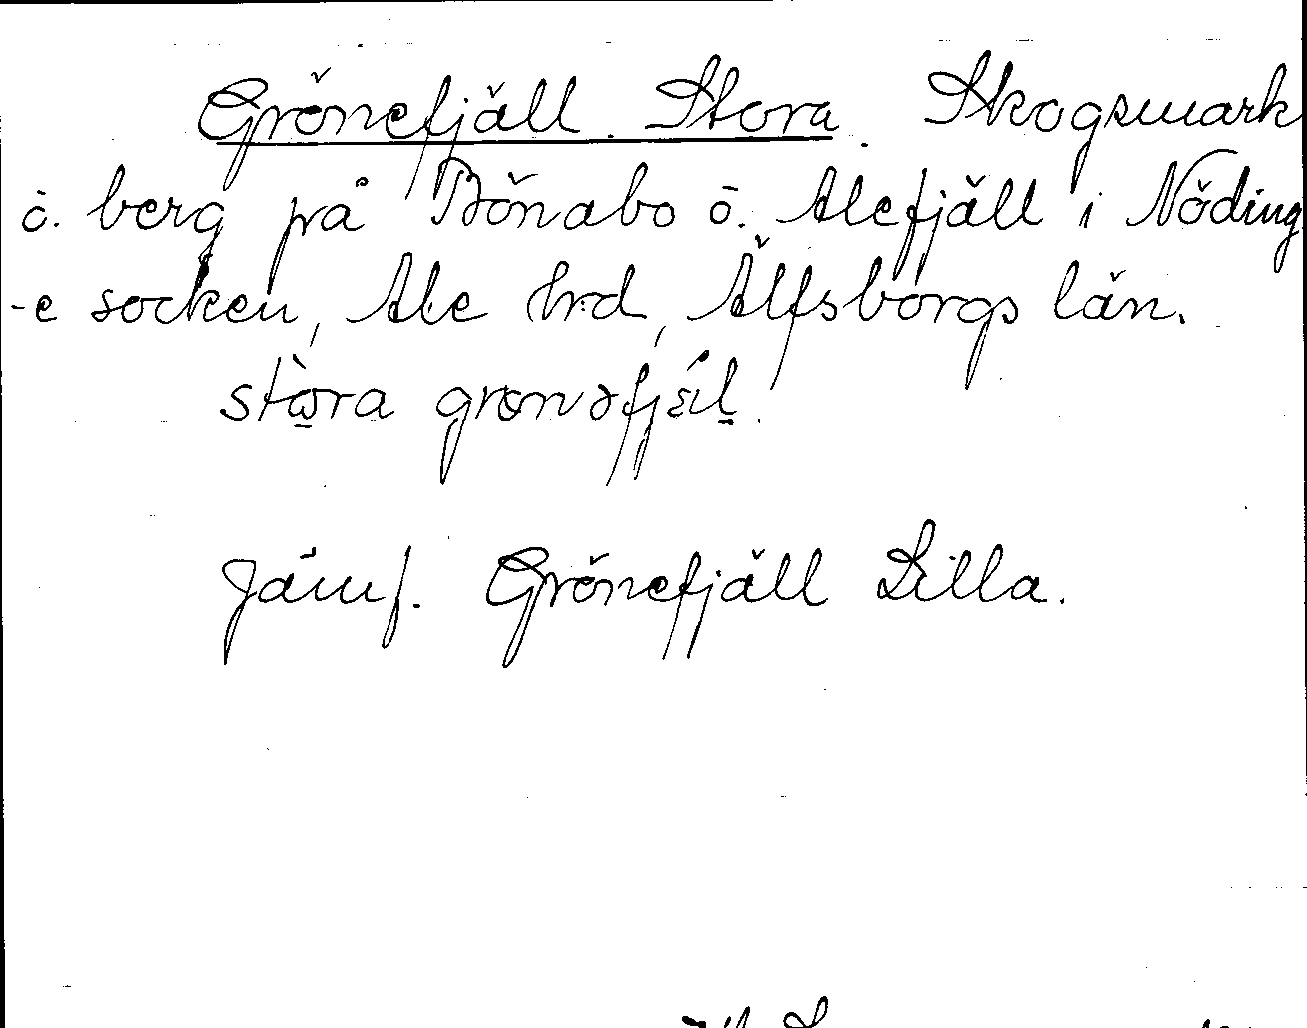 Grönefjäll Stora. Skogsmark
ö. berg på Bönabo ö. Alefjäll i Nöding
-e socken, Ale hrd, Älfsborgs län.
stòra grønəfjäl.
Jämf. Grönefjäll Lilla.